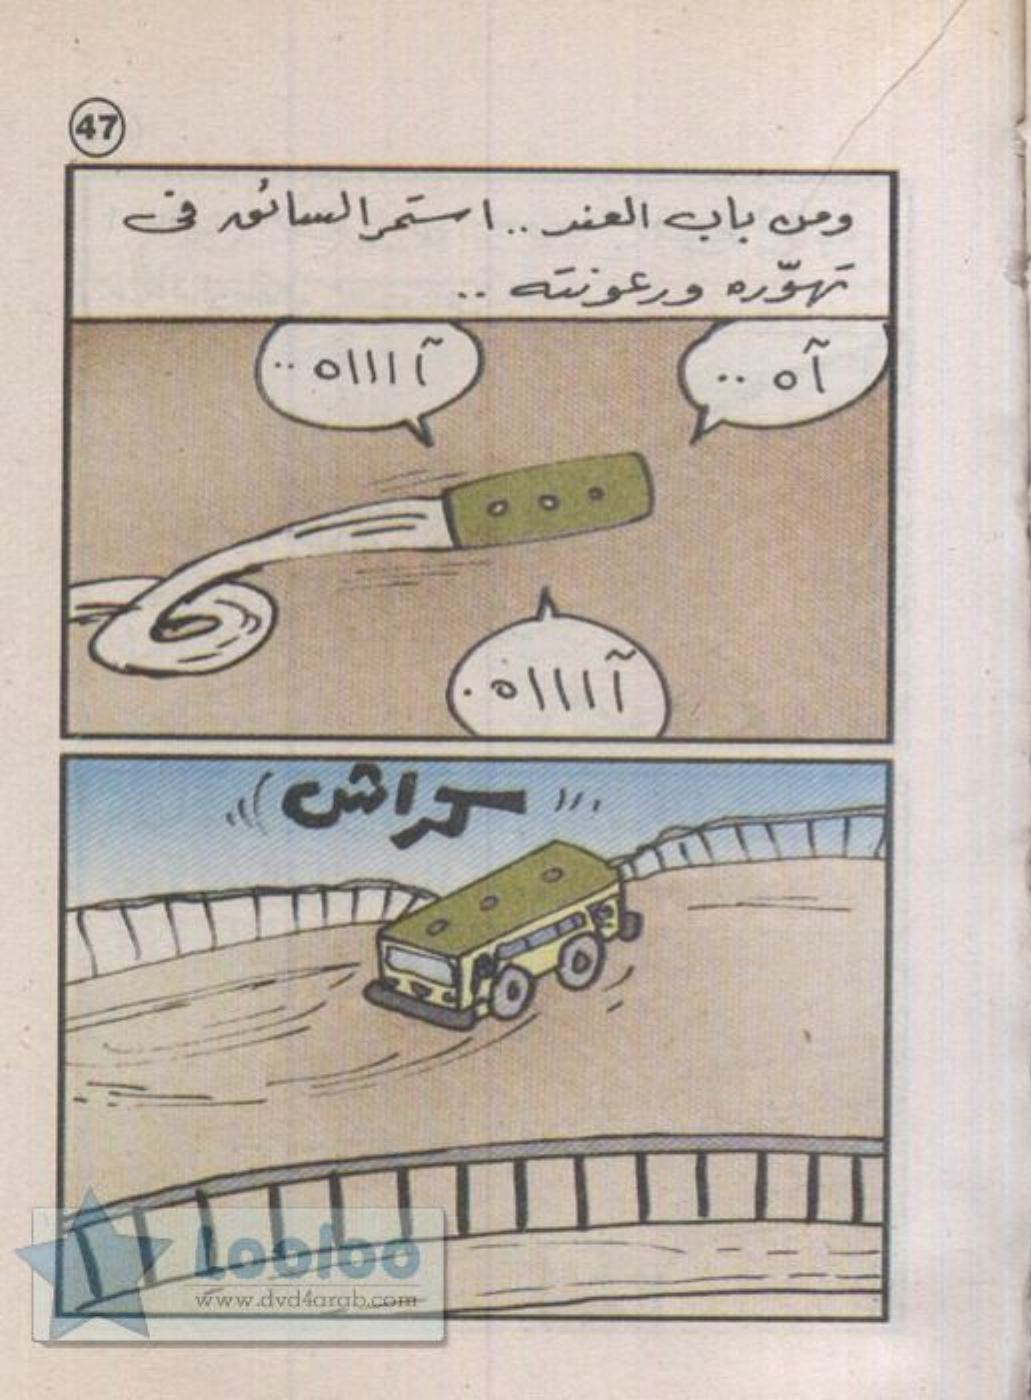 47
ومن باب العند .. استمر السائق فى
تهوّره ورعونته ..
آه ..
آااااه ..
آااااه .
كراش
Looloo
www.dvd4arab.com